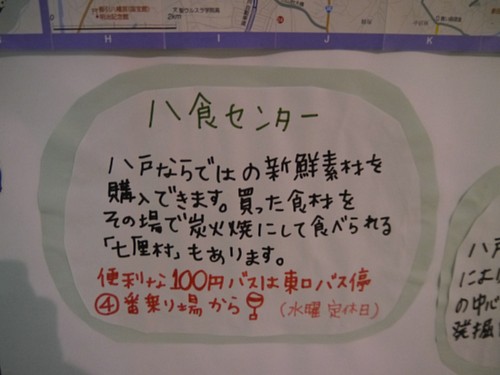 H I J K
2km
八食センター
八戸ならではの新鮮素材を
購入できます。買った食材を
その場で炭火焼にして食べられる
「七厘村」もあります。
便利な100円バスは東口バス停
④番乗り場から (水曜定休日)
八戸
によ
の中心
発掘